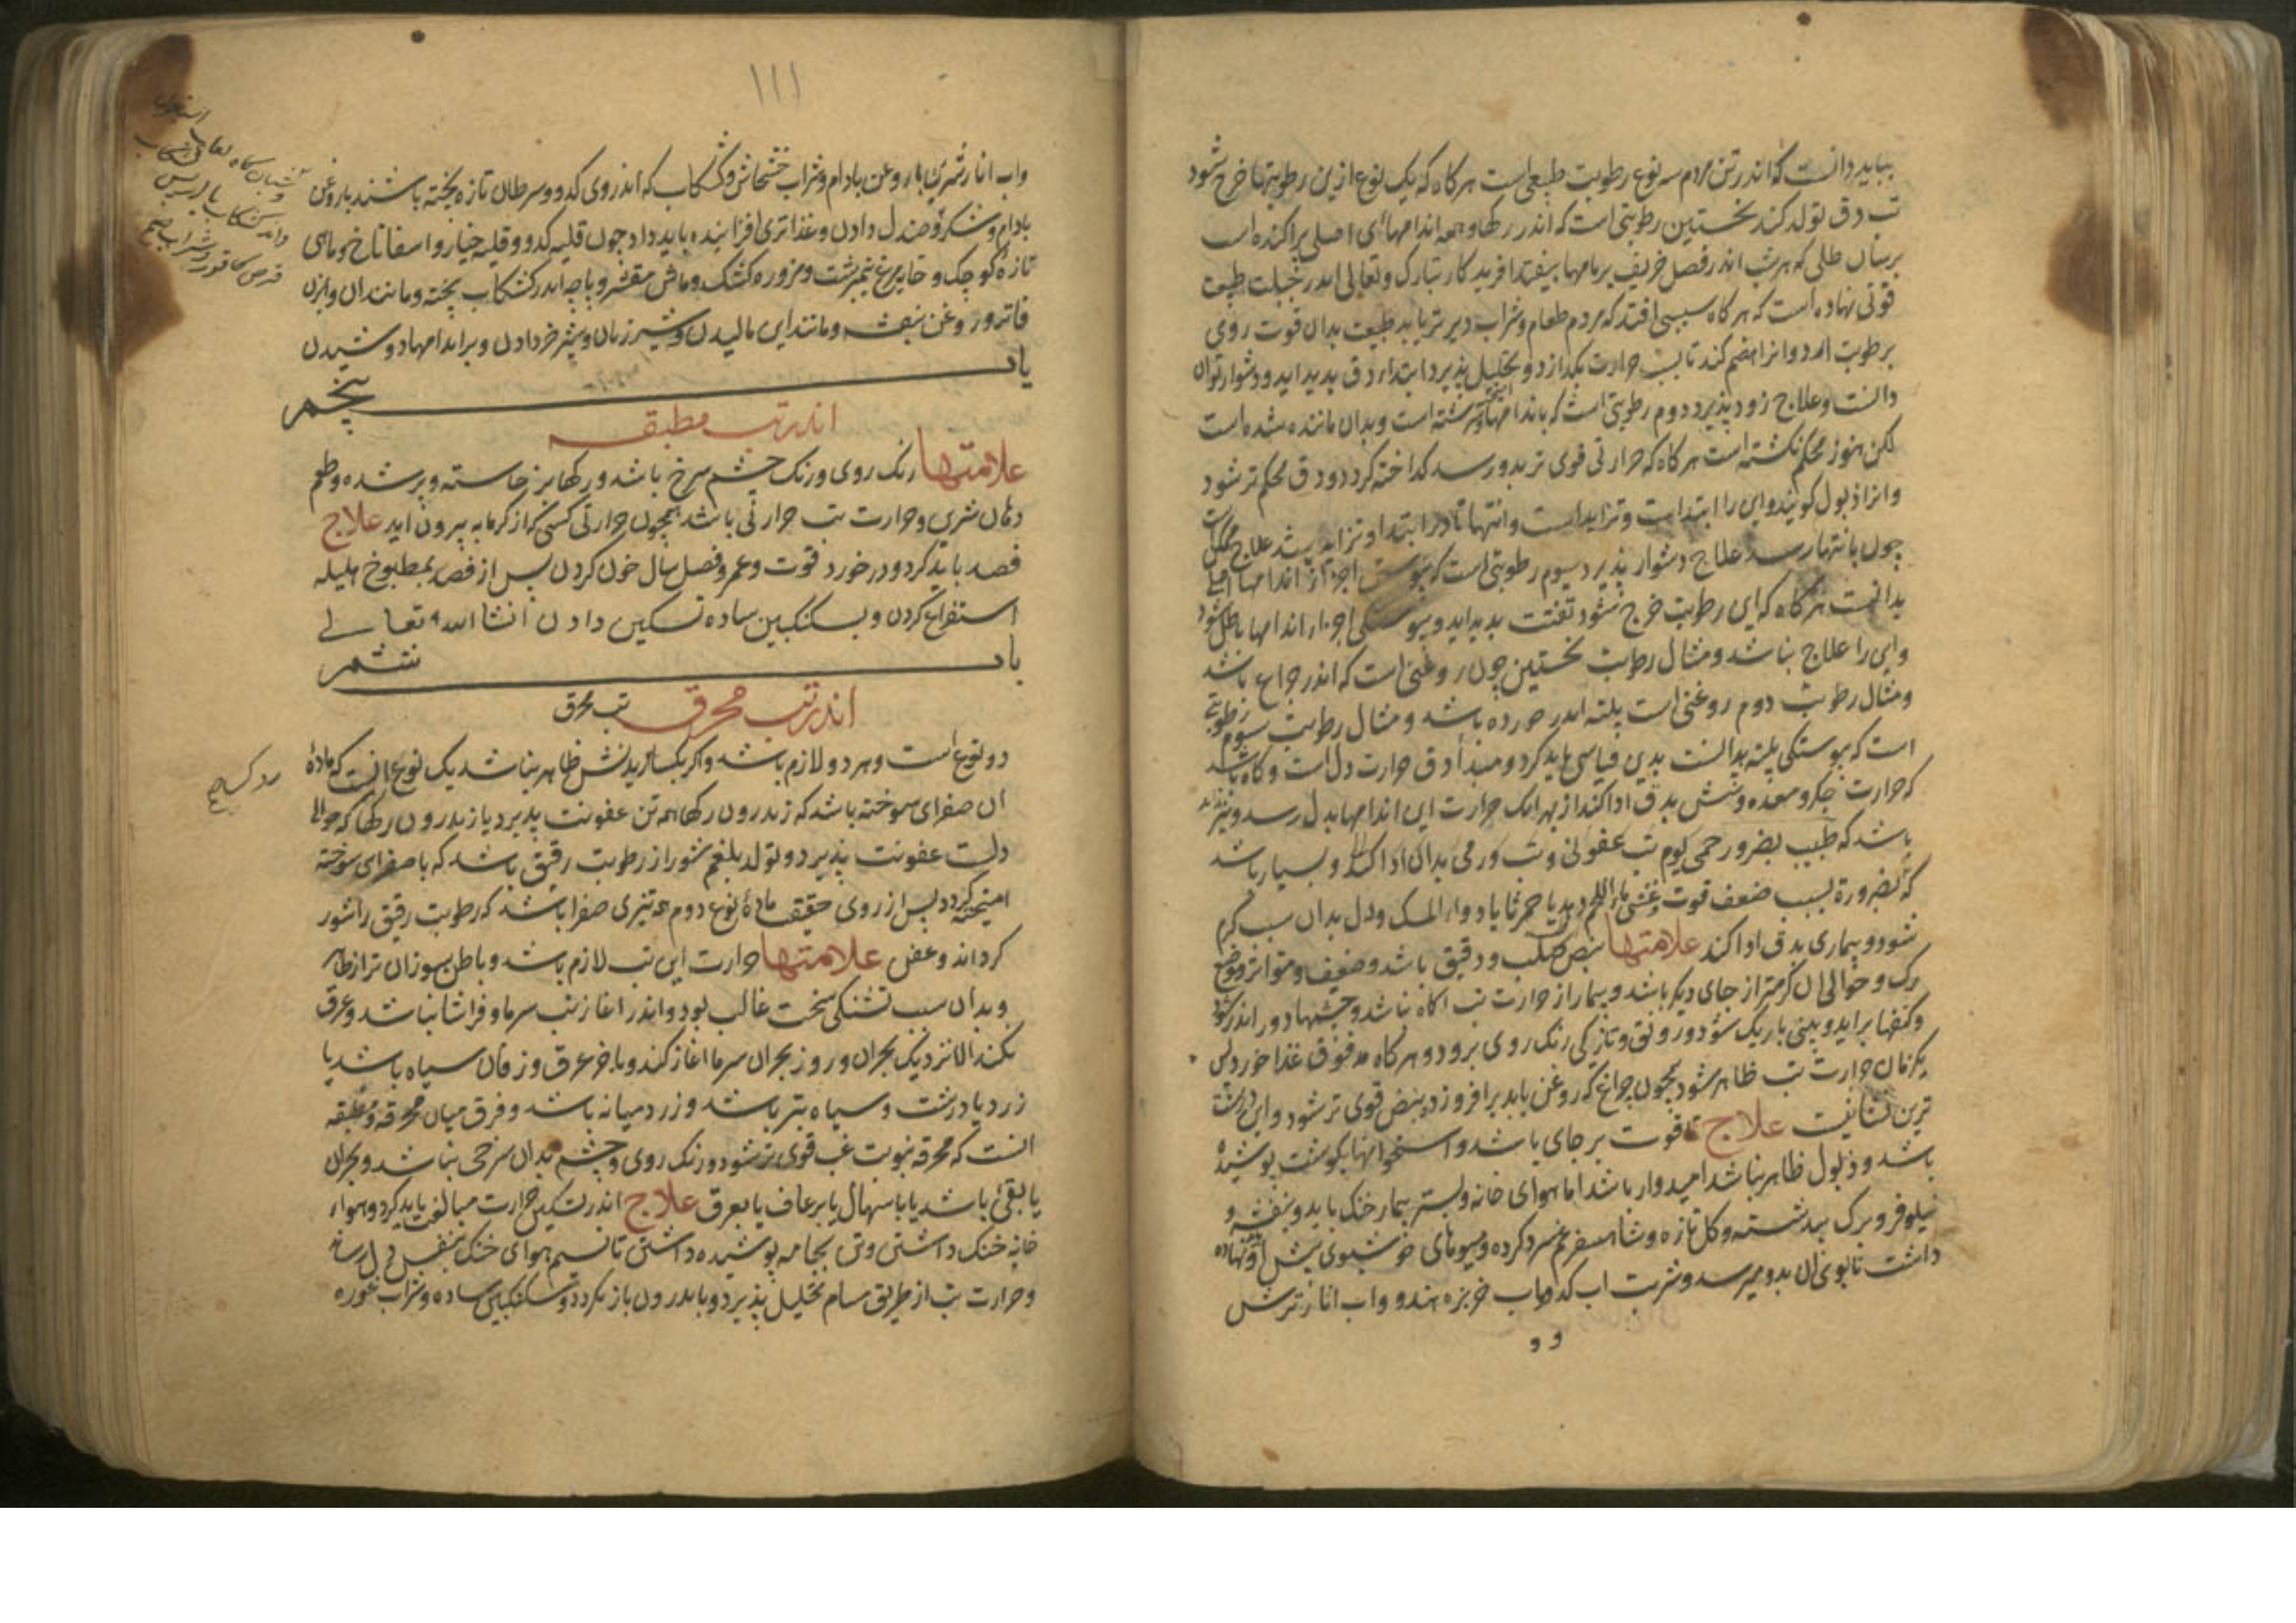 بباید دانست که اندر تن مردم سه نوع رطوبت طبیعی است هر کاه که یک نوع ازین رطوبتها خرج شود
تب دق تولد کند نخستین رطوبتی است که اندر رکها و همه اندامهاء اصلی پراکنده است
برسان طلی که هر شب اندر فصل خریف بر بامها بیفتد افریدکار تبارک و تعالی اندر طبیعت
قوتی نهاده است که هر کاه سببی افتد که مردم طعام و شراب دیرتر یابد طبیعت بدان قوت روی
برطوبت ارد و انرا هضم کند تا بسبب حرارت بکدازد و تحلیل پذیرد ابتداء دق پدید اید و دشوار توان
دانست و علاج زود پذیرد دوم رطوبتی است که باندامها سرشته است و بدان ماننده شده است
لکن هنوز محکم نکشته است هر کاه که حرارتی قوی تر بدو رسد کداخته کردد و دق محکم تر شود
و انرا ذبول کویند و این را ابتداست و تزاید است و انتها تا در ابتدا و تزاید باشد علاج ممکن است
چون بانتها رسد علاج دشوار پذیرد سیوم رطوبتی است که پیوستن اجزاء اندامها اصلی
بدانست هر کاه که این رطوبت خرج شود تفتت پدید اید و پیوستکی اجزاء اندامها باطل شود
و این را علاج نباشد و مثال رطوبت نخستین چون روغنی است که اندر چراغ باشد
و مثال رطوبت دوم روغنی است پلته اندر خورده باشد و مثال رطوبت سیوم رطوبتی
است که پیوستکی پلته بدانست بدین قیاس باید کرد و مبدأ دق حرارت دل است و کاه باشد
که حرارت جکر و معده و شش بدق ادا کند از بهر انک حرارت این اندامها بدل رسد و نیز
باشد که طبیب بضرور حمی یوم تب عفونی و تب ورمی بدان ادا کند و بسیار باشد
که بضرورة بسبب ضعف قوت و غشی ماء اللحم دهد یا خمر تا یا دواء المسک و دل بدان سبب کرم
شود و بیماری بدق ادا کند علامتها نبض صلب و دقیق باشد و ضعیف و متواتر و موضع
رک و حوالی ان کرمتر از جای دیکر باشد و بیمار از حرارت تب اکاه نباشد و چشمها دور اندر شود
و کتفها براید و بینی باریک شود و رونق و تازکی رنک روی برود و هر کاه که مدقوق غذا خورد پس
یکزمان حرارت تب ظاهر شود همچون چراغ که روغن یابد برافروزد و نبض قوی تر شود و این درست
ترین نشانیست علاج تا قوت بر جای باشد و استخوانها بکوشت پوشیده
باشد و ذبول ظاهر نباشد امیدوار باشد اما هوای خانه و بستر بیمار خنک باید و بنفشه و
نیلوفر و برک بید شسته و کل تازه و شاهسفرغم سرد کرده و میوهای خوشبوی پیش او نهاده
داشت تا بوی ان بدو میرسد و شربت اب کدو و اب خربزه هندو و اب انار ترش
۱۱۱
واب انار شیرین با روغن بادام و شراب خشخاش و کشکاب که اندر وی کدو و سرطان تازه پخته باشند با روغن
بادام و شکر و صندل دادن و غذا تری افزاینده باید داد چون قلیه کدو و قلیه خیار و اسفاناخ و ماهی
تازه کوچک و خایه مرغ نیمبرشت و مزوره کشک و ماش مقشر و پاچه اندر کشکاب پخته و مانند ان و ابزن
فاتر و روغن بنفشه و مانند این مالیدن و شیر زنان و شیر خر دادن و بر اندامها دوشیدن
باب پنجم
اندر تب مطبقه
علامتها رنک روی و رنک چشم سرخ باشد و رکها برخاسته و پر شده و طعم
دهان شیرین و حرارت تب حرارتی باشد همچون حرارتی کسی که از کرمابه بیرون اید علاج
فصد باید کرد و در خورد قوت و عمر و فصل سال خون کردن پس از فصد بمطبوخ هلیله
استفراغ کردن و بسکنکبین ساده تسکین دادن انشاالله تعالی
باب ششم
اندر تب محرق تب محرق
دو نوع است و هر دو لازم باشد و اکر یکساریدنش ظاهر نباشد یک نوع انست که مادۀ
ان صفرای سوخته باشد که اندرون رکها همه تن عفونت پذیرد یا اندرون رکها که حوالی
دلست عفونت پذیرد و تولد بلغم شور از رطوبت رقیق باشد که با صفرای سوخته
امیخته کردد پس از روی حقیقت مادۀ نوع دوم هم تیزی صفرا باشد که رطوبت رقیق را شور
کرداند و عفن علامتها حرارت این تب لازم باشد و باطن سوزان تر از ظاهر
و بدان سبب تشنکی سخت غالب بود و اندر اغاز تب سرما و فراشا نباشد و عرق
نکند الا نزدیک بحران و روز بحران سرما اغاز کند و باخر عرق و زفان سیاه باشد یا
زرد یا درشت و سیاه بتر باشد و زرد میانه باشد و فرق میان محرقه و مطبقه
انست که محرقه بنوبت غب قوی تر شود و رنک روی و چشم بدان سرخی نباشد و بحران
یا بقی باشد یا باسهال یا برعاف یا بعرق علاج اندر تسکین حرارت مبالغت باید کرد و هواء
خانه خنک داشتن و تن بجامه پوشیده داشتن تا نسیم هوای خنک بنفس بدل رسد
و حرارت تب از طریق مسام تحلیل پذیرد و باندرون باز نکردد و سکنکبین ساده و شراب غوره